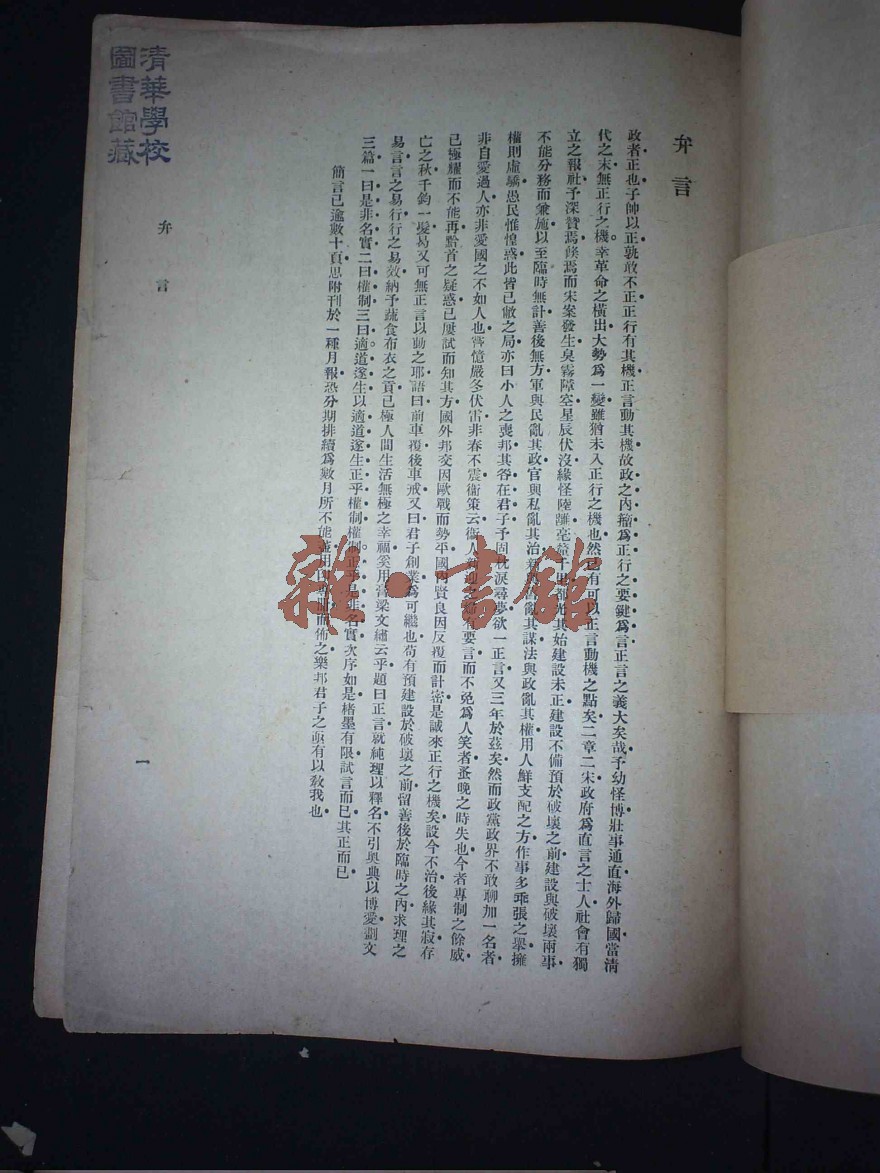 弁言
政者正也子帥以正孰敢不正正行有其機正言動其機故政之內籀爲正行之要鍵爲言正言之義大矣哉予幼怪博壯事通直海外歸國當清
代之末無正行之機幸革命之橫出大勢爲一變雖猶未入正行之機也然已有可以正言動機之點矣二章二宋政府爲直言之士人社會有獨
立之報社予深贊焉候焉而宋案發生臭霧障空星辰伏沒緣怪陸離毫 千里都 其始建設未正建設不備預於破壞之前建設與破壞兩事
不能分務而兼施以至臨時無計善後無方軍與民亂其政官與私亂其治 亂其謀法與政亂其權用人鮮支配之方作事多乖張之舉擁
權則虛驕愚民惟惶惑此皆已敝之局亦曰小人之喪邦其咎在君子予固枕淚尋夢欲一正言又三年於茲矣然而政黨政界不敢聊加一名者
非自愛過人亦非愛國之不如人也嘗憶嚴冬伏雷非春不震衞策云衞人 迎之 有要言而不免爲人笑者蚤晚之時失也今者專制之餘威
已極耀而不能再黔首之疑惑已屢試而知其方國外邦交因歐戰而勢平國內賢良因反覆而計密是誠來正行之機矣設今不治後緣其寂存
亡之秋千鈞一髮曷又可無正言以動之耶語曰前車覆後車戒又曰君子創業爲可繼也苟有預建設於破壞之前留善後於臨時之內求理之
易言言之易行行之易效納予蔬食布衣之貢已極人間生活無極之幸福奚用膏梁文繡云乎題曰正言就純理以釋名不引奥典以博愛劃文
三篇一曰是非名實二曰權制三曰適道遂生以適道遂生正乎權制權制正乎是非名實次序如是楮墨有限試言而已其正而已
簡言已逾數十頁思附刊於一種月報恐分期排續爲數月所不能 用 專 而佈之樂邦君子之 有以敎我也
弁言
一
清華學校
圖書館藏
雜·書館